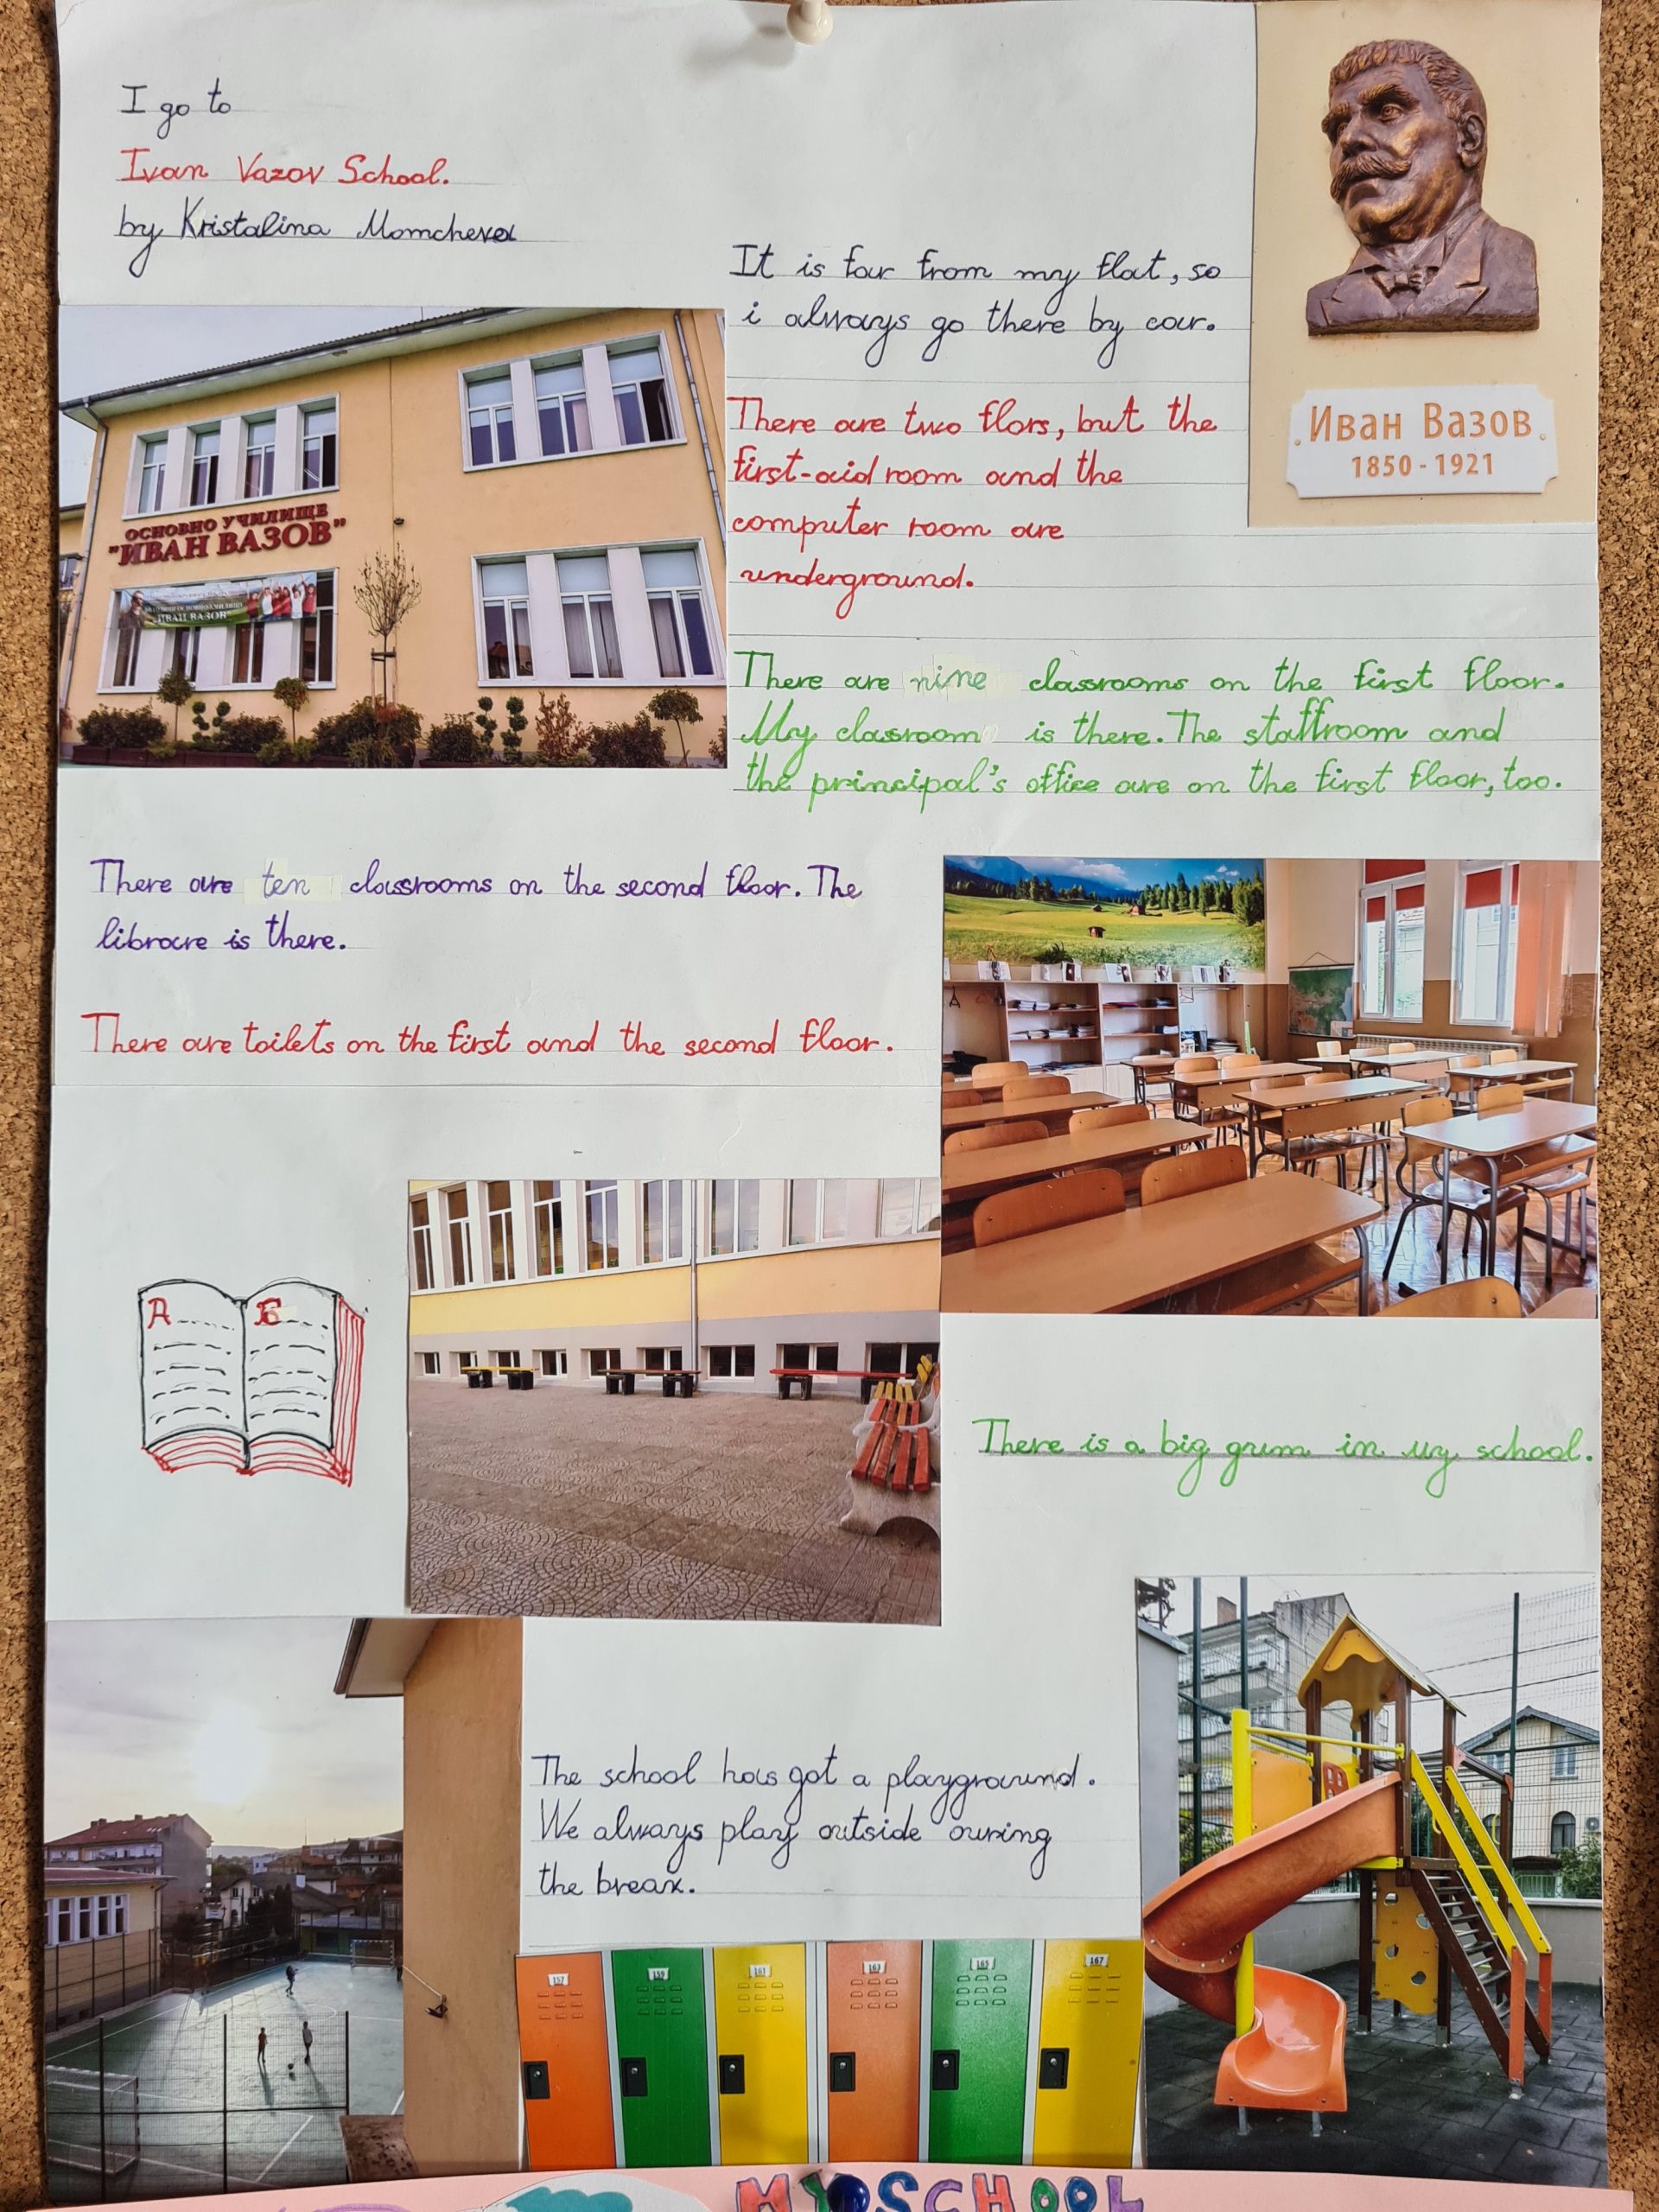 I go to
Ivan Vazov School.
by Kristalina Momcheva
It is far from my flat, so
i always go there by car.
Иван Вазов
1850 - 1921
There are two flors, but the
first-aid room and the
computer room are
underground.
ОСНОВНО УЧИЛИЩЕ
"ИВАН ВАЗОВ"
"ИВАН ВАЗОВ"
There are nine classrooms on the first floor.
My classroom is there. The staffroom and
the principal's office are on the first floor, too.
There are ten classrooms on the second floor. The
librare is there.
There are toilets on the first and the second floor.
А Б
There is a big gum in my school.
The school has got a playground.
We always play outside during
the break.
157 159 161 163 165 167
MY SCHOOL